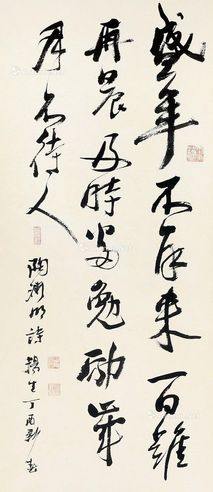 盛年不再来一日難
再晨及时當勉励歲
月不待人
陶渊明詩 丁酉